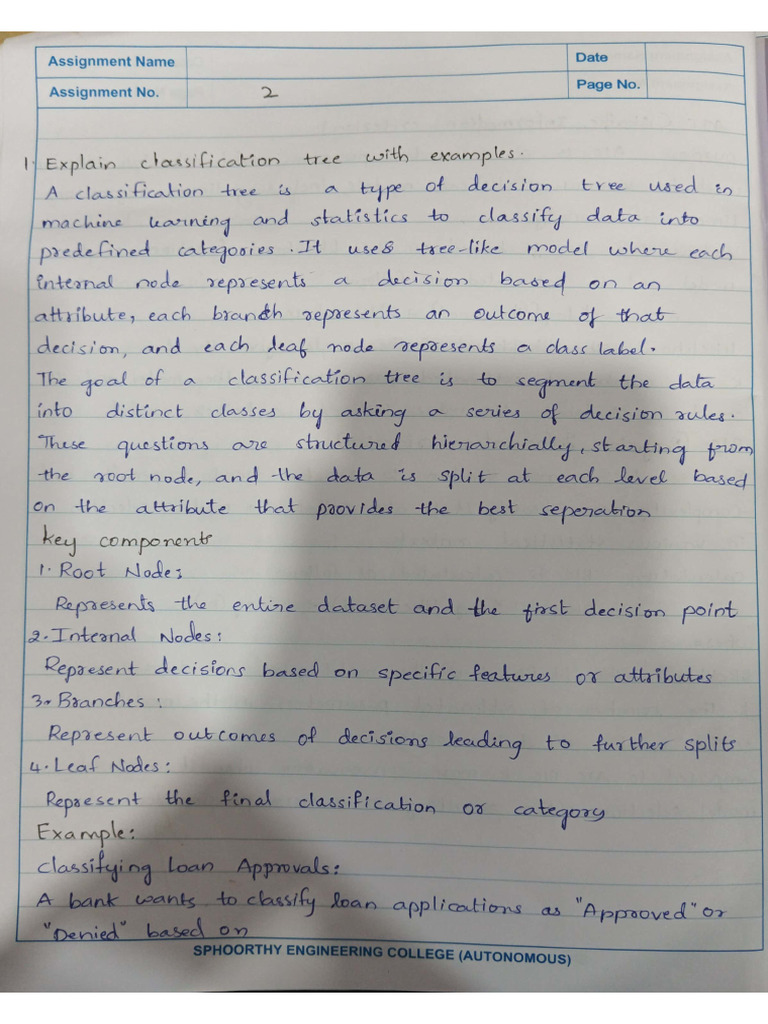 Assignment Name
Date
Assignment No. 2
Page No.
1. Explain classification tree with examples.
A classification tree is a type of decision tree used in
machine learning and statistics to classify data into
predefined categories. It uses tree-like model where each
internal node represents a decision based on an
attribute, each branch represents an outcome of that
decision, and each leaf node represents a class label.
The goal of a classification tree is to segment the data
into distinct classes by asking a series of decision rules.
These questions are structured hierarchially, starting from
the root node, and the data is split at each level based
on the attribute that provides the best seperation
key components
1. Root Node:
Represents the entire dataset and the first decision point
2. Internal Nodes:
Represent decisions based on specific features or attributes
3. Branches:
Represent outcomes of decisions leading to further splits
4. Leaf Nodes:
Represent the final classification or category
Example:
Classifying Loan Approvals:
A bank wants to classify loan applications as "Approoved" or
"Denied" based on
SPHOORTHY ENGINEERING COLLEGE (AUTONOMOUS)